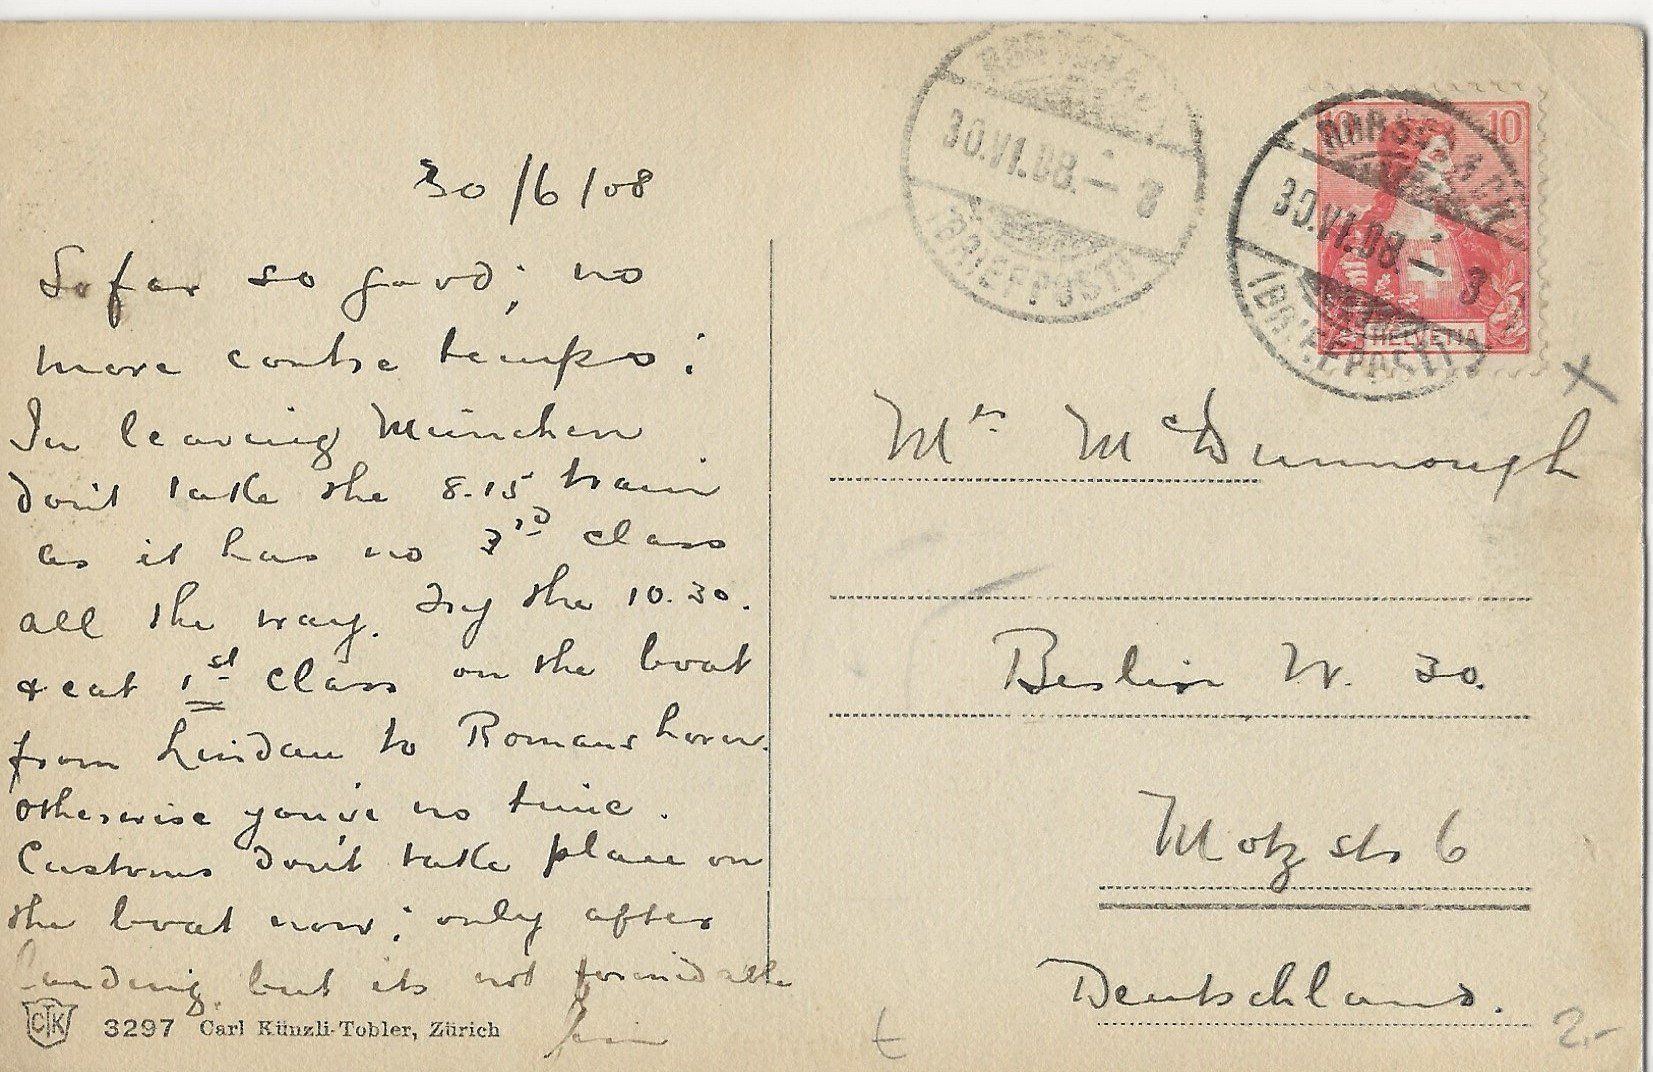 30/6/08
So far so good; no
more contre temps;
In leaving München
don't take the 8.15 train
as it has no 3rd class
all the way. Try the 10.30.
& eat 1st class on the boat
from Lindau to Romanshorn.
otherwise you've no time.
Customs don't take place on
the boat now; only after
landing. but its not formidable
CTK 3297 Carl Künzli-Tobler, Zürich
30.VI.08.–8
(BRIEFPOST)
10 10
RORSCHACH
30.VI.08.–8
(BRIEFPOST)
HELVETIA
Mrs McDunnough
Berlin W. 30.
Motzstr 6
Deutschland.
2.-